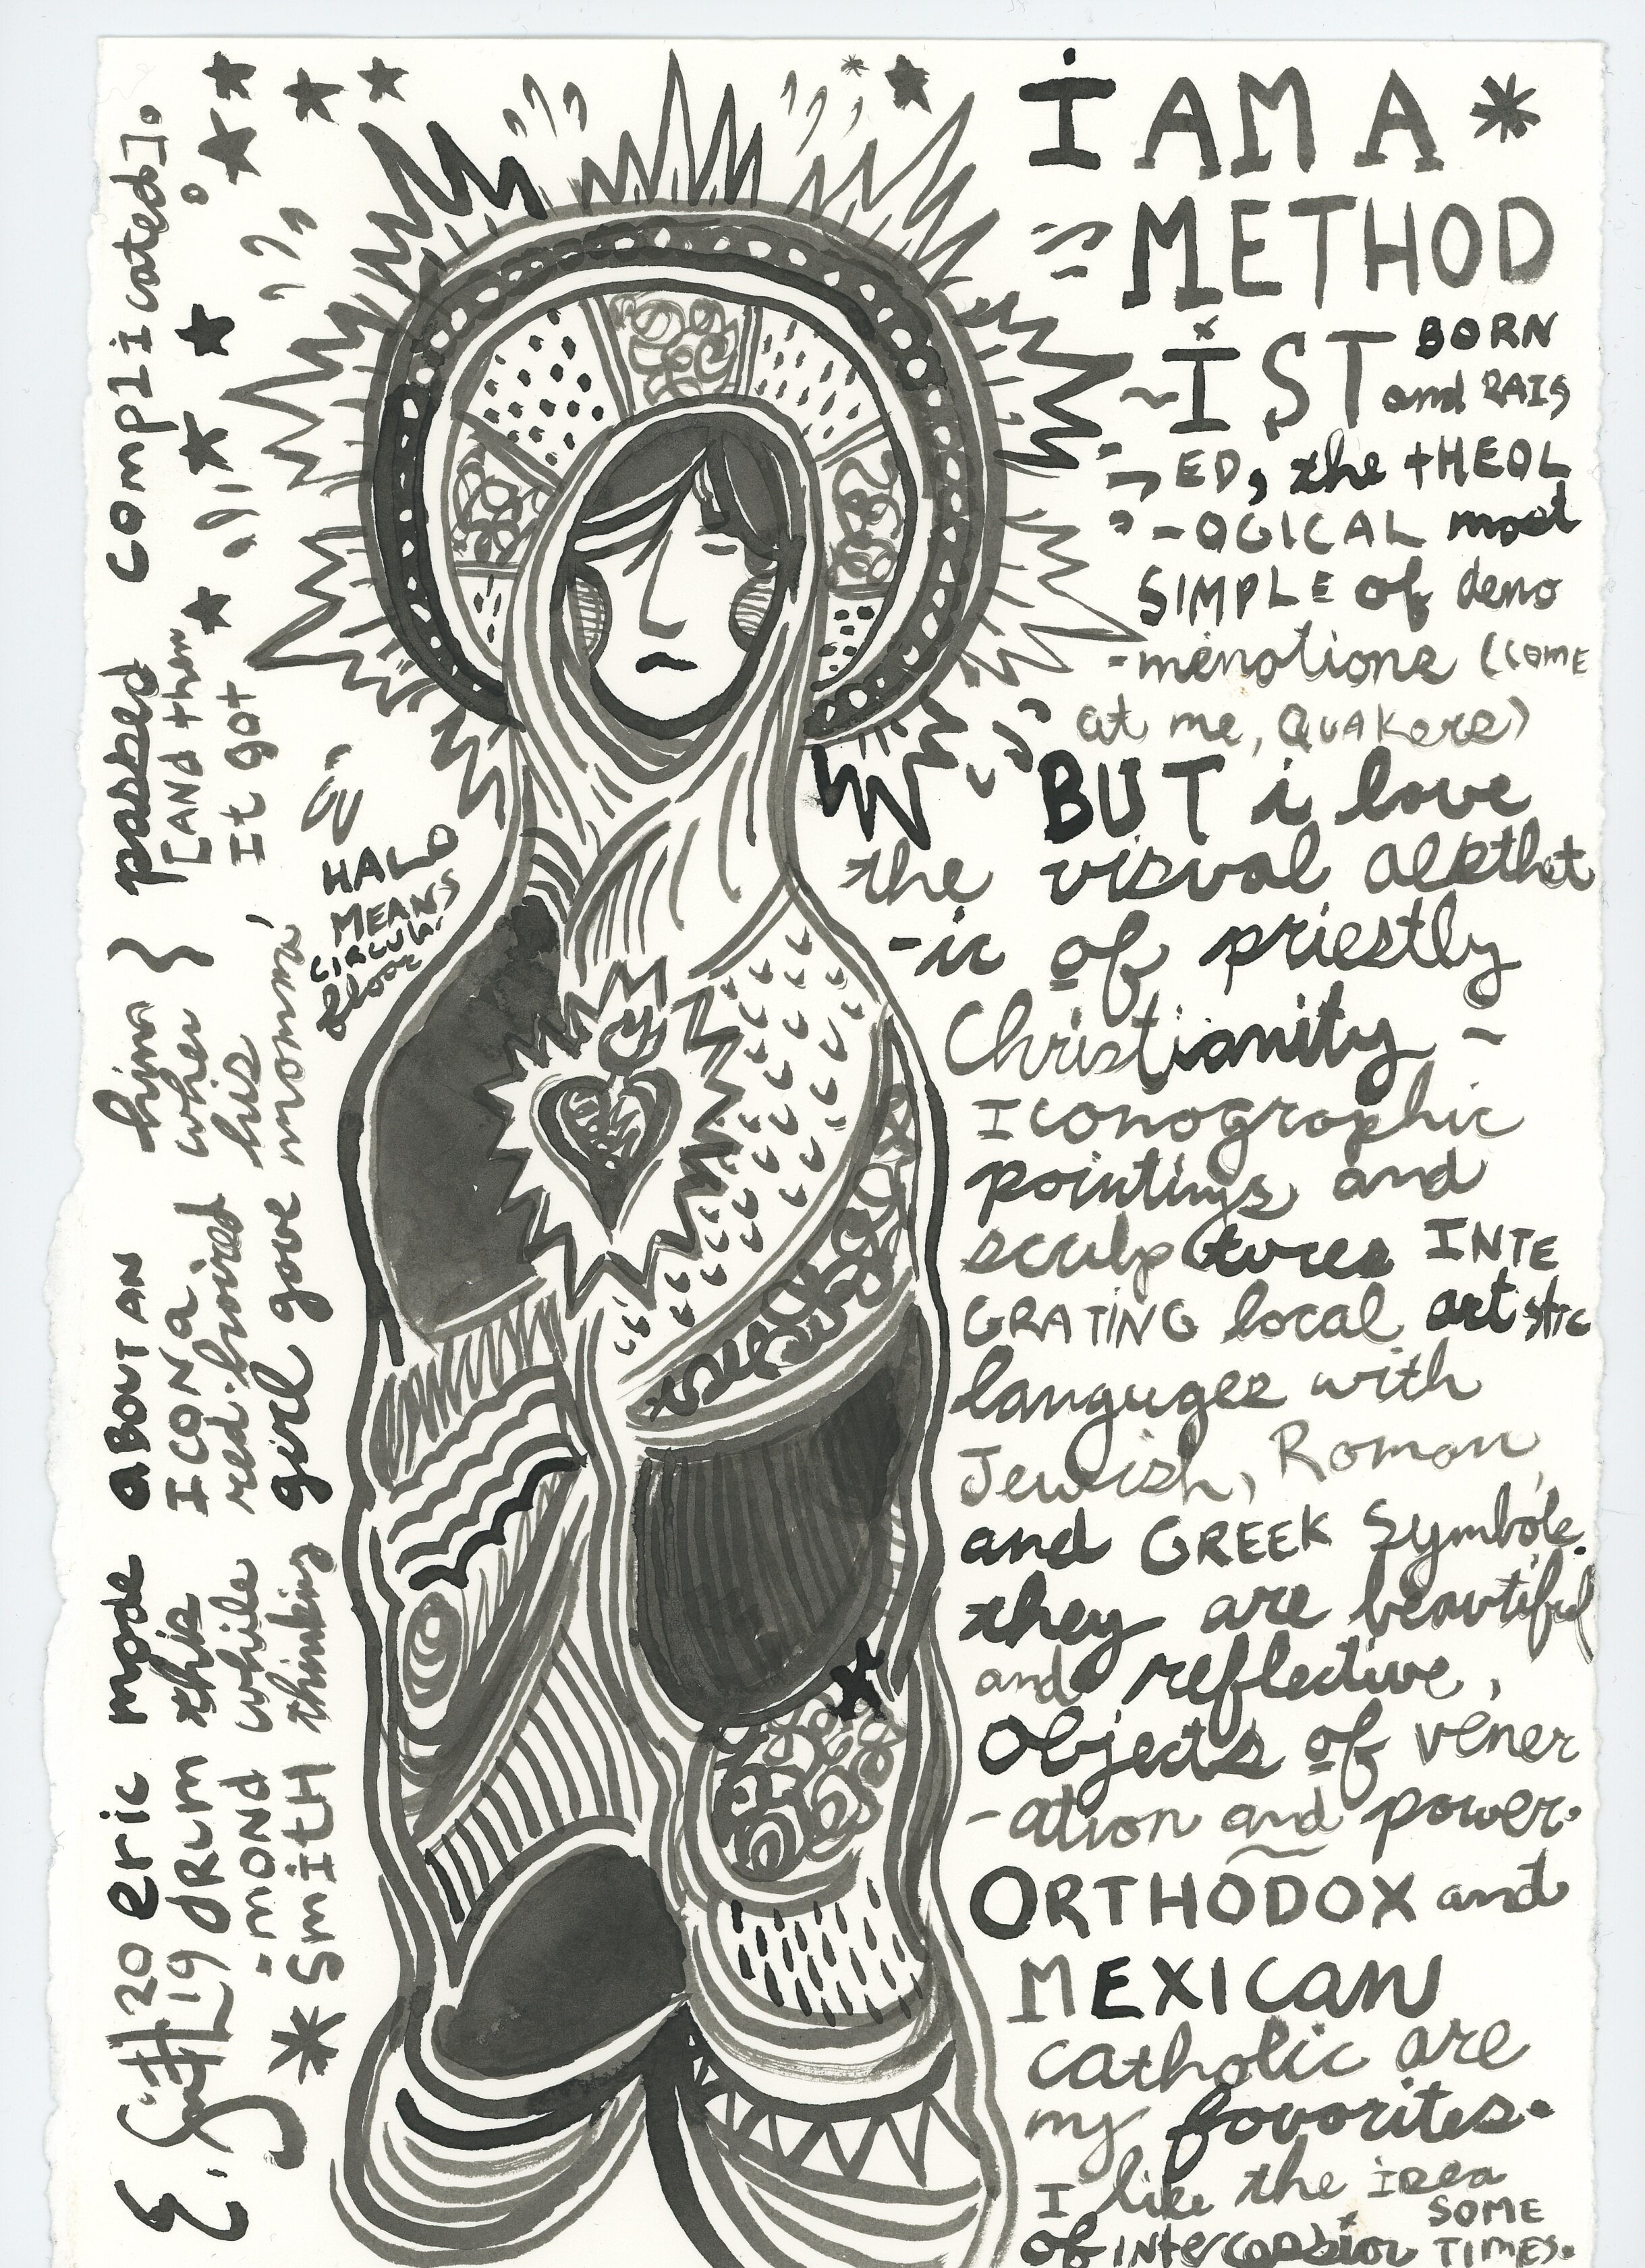 I AM A *
METHOD
IST BORN
and RAIS
ED, the tHEOL
-OGICAL most
SIMPLE of deno
-menations (COME
at me, QUAKers)
BUT i love
the visual aesthet
-ic of priestly
Christianity -
Iconographic
paintings and
sculptures INTE
GRATING local artistic
languges with
Jewish, Roman
and GREEK Symbols.
they are beautiful
and reflective,
objects of vener
-ation and power.
ORTHODOX and
MEXICAN
catholic are
my favorites.
I like the idea
of intercession SOME
TIMES.
HALO
MEANS
circular
floor
E. Smith
20
19
eric
drum
-mond
*Smith
made
this
while
thinking
about AN
ICON a
red-haired
girl gave
him
when
his
momma,
passed
[AND then
It got
complicated].